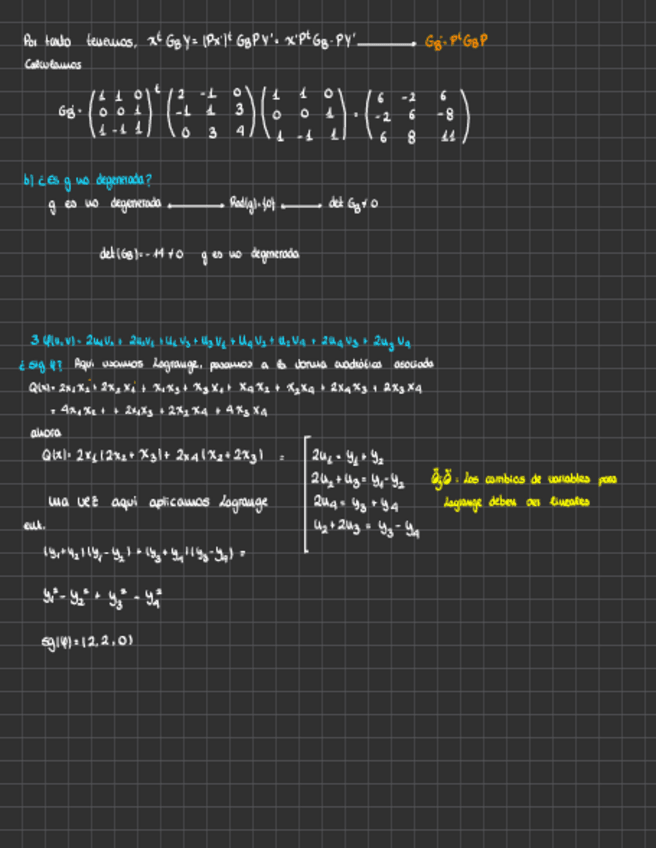 Por tanto tenemos, xᵗ G_B Y = (Px')ᵗ G_B P Y' = x' Pᵗ G_B · P Y' ⟶ G_B' = Pᵗ G_B P
Calculamos
G_B' = (1 1 0; 0 0 1; 1 -1 1)ᵗ (2 -1 0; -1 1 3; 0 3 4) (1 1 0; 0 0 1; 1 -1 1) = (6 -2 6; -2 6 -8; 6 8 11)
b) ¿Es g no degenerada?
g es no degenerada ⟶ Rad(g) = {0} ⟶ det G_B ≠ 0
det(G_B) = -11 ≠ 0 g es no degenerada
3 φ(u,v) = 2u₁v₂ + 2u₂v₁ + u₁v₃ + u₃v₁ + u₄v₂ + u₂v₄ + 2u₄v₃ + 2u₃v₄
¿sig φ? Aqui usamos Lagrange, pasamos a la forma cuadrática asociada
Q(x) = 2x₁x₂ + 2x₂x₁ + x₁x₃ + x₃x₁ + x₄x₂ + x₂x₄ + 2x₄x₃ + 2x₃x₄
= 4x₁x₂ + + 2x₁x₃ + 2x₂x₄ + 4x₃x₄
ahora
Q(x) = 2x₁(2x₂ + x₃) + 2x₄(x₂ + 2x₃) =
2u₁ = y₁ + y₂
2u₂ + u₃ = y₁ - y₂
2u₄ = y₃ + y₄
u₂ + 2u₃ = y₃ - y₄
: Los cambios de variables para
Lagrange deben ser lineales
una vez aqui aplicamos Lagrange
ent.
(y₁ + y₂)(y₁ - y₂) + (y₃ + y₄)(y₃ - y₄) =
y₁² - y₂² + y₃² - y₄²
sg(φ) = (2, 2, 0)